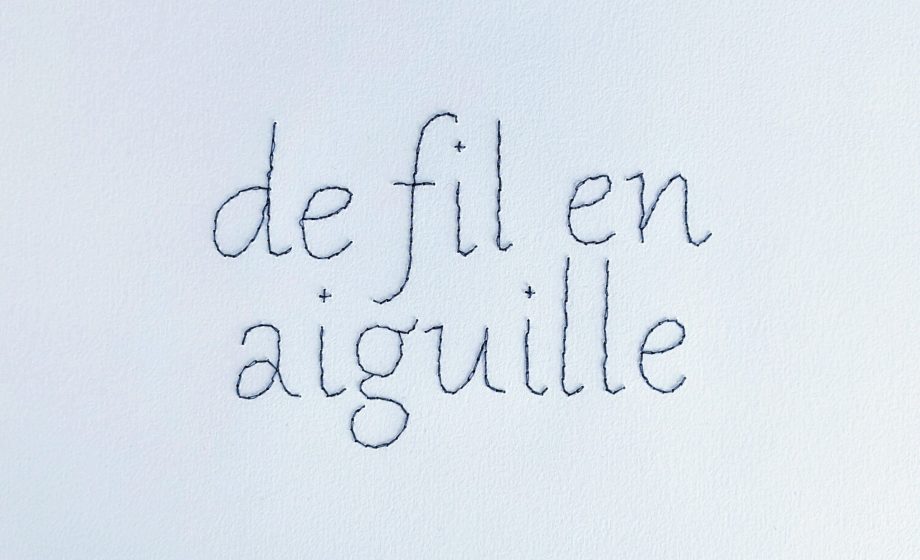 de fil en
aiguille